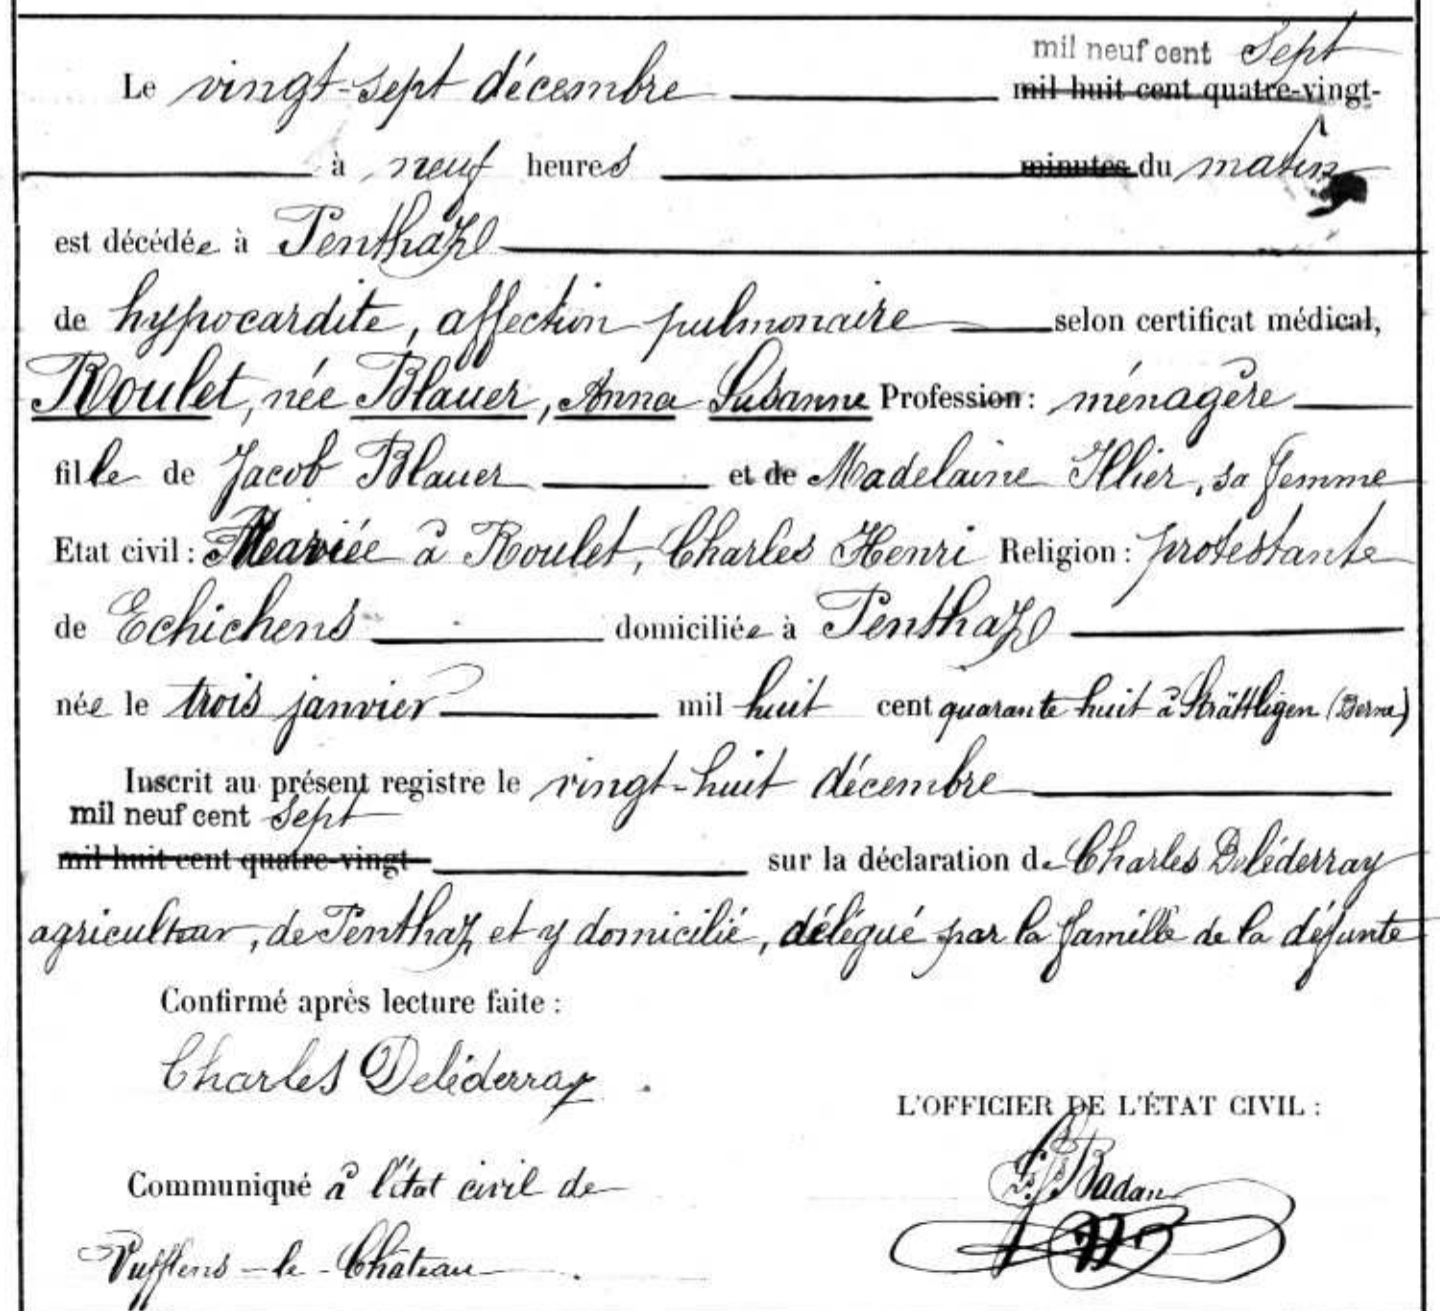 mil neuf cent Sept
Le vingt-sept décembre mil huit cent quatre-vingt-
à neuf heures minutes du matin
est décédée à Penthaz
de hypocardite, affection pulmonaire selon certificat médical,
Roulet, née Blauer, Anna Susanne Profession: ménagère
fille de Jacob Blauer et de Madelaine Illier, sa femme
Etat civil: Mariée à Roulet, Charles Henri Religion: protestante
de Echichens domiciliée à Penthaz
née le trois janvier mil huit cent quarante huit à Strättligen (Berne)
Inscrit au présent registre le vingt-huit décembre
mil neuf cent Sept
mil huit cent quatre-vingt sur la déclaration de Charles Deléderray
agriculteur, de Penthaz et y domicilié, délégué par la famille de la défunte
Confirmé après lecture faite:
Charles Deléderraz.
L'OFFICIER DE L'ÉTAT CIVIL:
Badan
Communiqué à l'état civil de
Vufflens-le-Château.